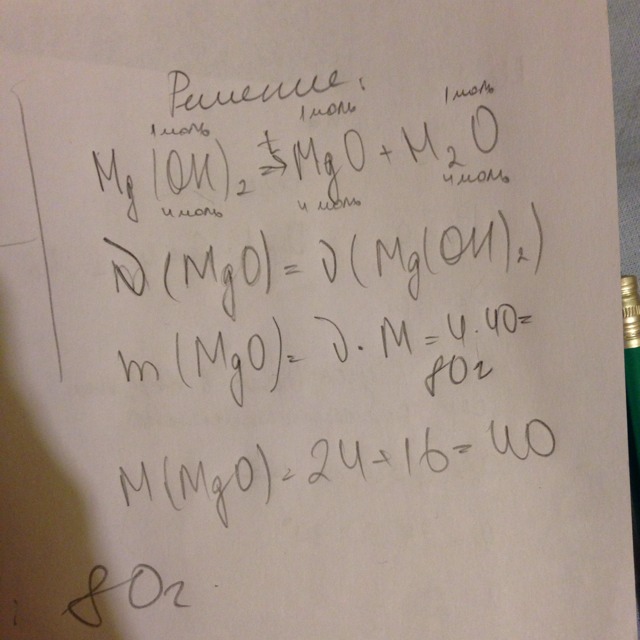 Решение:
1 моль 1 моль 1 моль
Mg(OH)₂ ᵗ→ MgO + H₂O
4 моль 4 моль 4 моль
ν(MgO) = ν(Mg(OH)₂)
m(MgO) = ν · M = 4 · 40 =
80г
M(MgO) = 24 + 16 = 40
80г